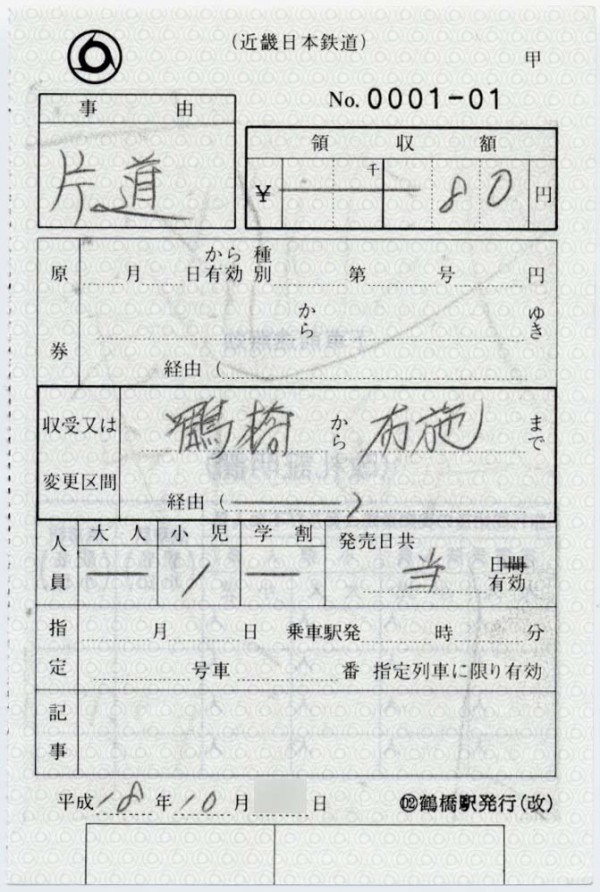 (近畿日本鉄道)
甲
No. 0001-01
事由
片道
領収額
¥ 千 80 円
原券
月 日から有効 種別 第 号 円
から ゆき
経由(
収受又は変更区間
鶴橋 から 布施 まで
経由( )
人員
大人 小児 学割
1
発売日共 当 日間有効
指定
月 日 乗車駅発 時 分
号車 番 指定列車に限り有効
記事
平成18年10月 日
D2鶴橋駅発行(改)